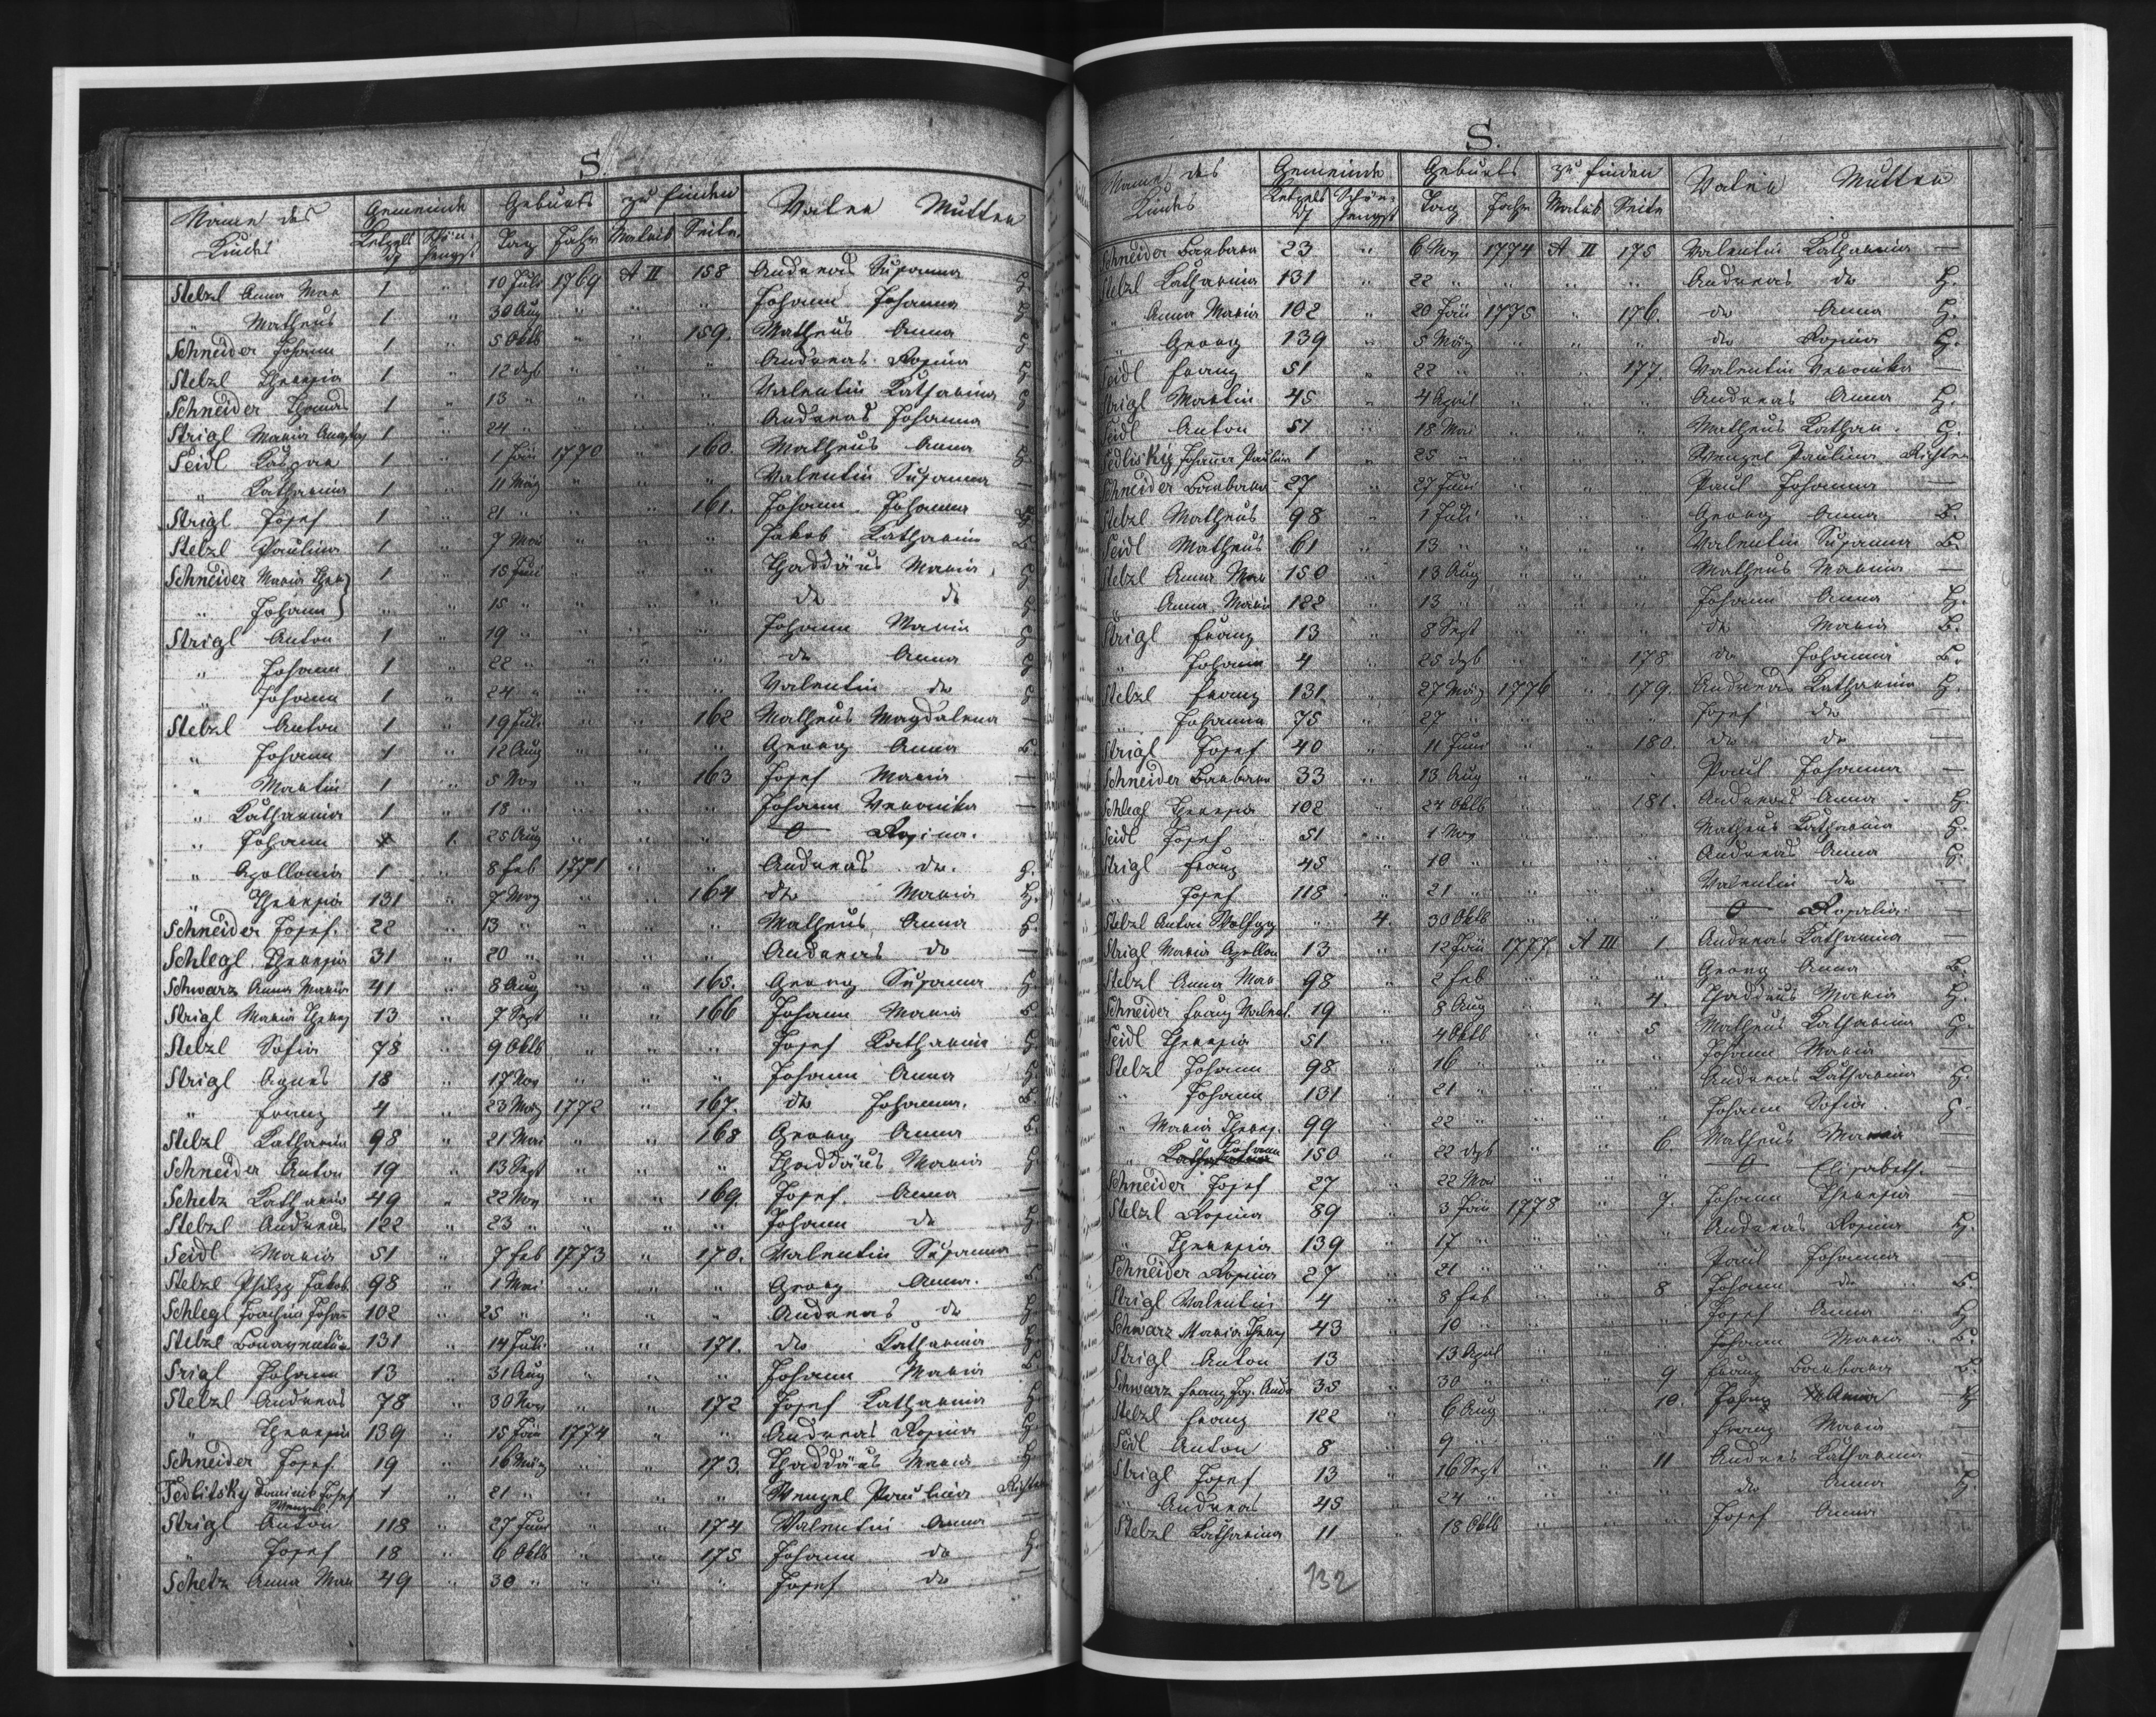 S.
Name des Kindes Gemeinde Geburts zu finden Vater Mutter
Ketzelsdf Schönhengst Tag Jahr Matrik Seite
Stelzl Anna Mar 1 " 10 Juli 1769 A II 158 Andreas Susanna H.
" Matheus 1 " 30 Aug " " " Johann Johanna H
Schneider Johann 1 " 5 Oktb " " 159. Matheus Anna H
Stelzl Theresia 1 " 12 dezb " " " Andreas Rosina H
Schneider Thomas 1 " 13 " " " " Valentin Katharina H
Strigl Maria 1 " 24 " " " " Andreas Johanna —
Seidl Kaspar 1 " 1 Jän 1770 " 160. Matheus Anna H
" Katharina 1 " 11 März " " " Valentin Susanna —
Strigl Josef 1 " 21 " " " 161. Johann Johanna B.
Stelzl Paulina 1 " 7 Mai " " " Jakob Katharina B.
Schneider Maria Ther 1 " 15 Juni " " " Thaddäus Maria H
" Johann " " 15 " " " " do do H
Strigl Anton 1 " 19 " " " " Johann Maria H
" Johann 1 " 22 " " " " do Anna H
" Johann 1 " 24 " " " " Valentin do H
Stelzl Anton 1 " 19 Juli " " 162 Matheus Magdalena —
" Johann 1 " 12 Aug " " " Georg Anna B.
" Martin 1 " 5 Nov " " 163 Josef Maria —
" Katharina 1 " 18 " " " " Johann Veronika —
" Johann 1. 25 Aug " " " O Rosina.
" Apollonia 1 " 8 Feb 1771 " " Andreas do. H.
" Theresia 131 " 7 März " " 164 do Maria H.
Schneider Josef. 22 " 13 " " " " Matheus Anna H.
Schlegl Theresia 31 " 20 " " " " Andreas do —
Schwarz Anna Maria 41 " 8 Aug " " 165. Georg Susanna H.
Strigl Maria Theres 13 " 7 Sept " " 166 Johann Maria B
Stelzl Sofia 78 " 9 Oktb " " " Josef Katharina H.
Strigl Agnes 18 " 17 Nov " " " Johann Anna H
" Franz 4 " 23 März 1772 " 167. do Johanna. B.
Stelzl Katharina 98 " 21 Mai " " 168 Georg Anna B.
Schneider Anton 19 " 13 Sept " " " Thaddäus Maria H.
Schetz Katharina 49 " 22 Nov " " 169. Josef. Anna —
Stelzl Andreas 122 " 23 " " " " Johann do H
Seidl Maria 51 " 7 Feb 1773 " 170. Valentin Susanna —
Stelzl Philipp Jakob 98 " 1 Mai " " " Georg Anna. B.
Schlegl Joachim Johan 102 " 25 " " " " Andreas do H.
Stelzl Bonaventura 131 " 14 Juli " " 171. do Katharina H.
Srigl Johann 13 " 31 Aug " " " Johann Maria B.
Stelzl Andreas 78 " 30 Nov " " 172 Josef Katharina H.
" Theresia 139 " 15 Jän 1774 " " Andreas Rosina H.
Schneider Josef. 19 " 16 März " " 173. Thaddäus Maria H.
Sedlitsky Dominik Josef Wenzel 1 " 21 " " " " Wenzel Paulina Richter
Strigl Anton 118 " 27 Juni " " 174 Valentin Anna —
" Josef 18 " 6 Oktb " " 175 Johann do H.
Schetz Anna Mar 49 " 30 " " " " Josef do —
S.
Name des Kindes Gemeinde Geburts zu finden Vater Mutter
Ketzelsdf Schönhengst Tag Jahr Matrik Seite
Schneider Barbara 23 " 6 Nov 1774 A II 175 Valentin Katharina —
Stelzl Katharina 131 " 22 " " " " Andreas do H.
" Anna Maria 102 " 20 Jän 1775 " 176. do Anna H.
" Georg 139 " 5 März " " " do Rosina H.
Seidl Franz 51 " 22 " " " 177. Valentin Veronika —
Strigl Martin 45 " 4 April " " " Andreas Anna H.
Seidl Anton 51 " 18 Mai " " " Matheus Kathar. H.
Sedlisky Johanna Paulina 1 " 25 " " " " Wenzel Paulina Richter
Schneider Barbara 27 " 27 Juni " " " Paul Johanna —
Stelzl Matheus 98 " 1 Juli " " " Georg Anna B.
Seidl Matheus 61 " 13 " " " " Valentin Susanna B.
Stelzl Anna Mar 150 " 13 Aug " " " Matheus Marina —
" Anna Maria 122 " 13 " " " " Johann Anna H.
Strigl Franz 13 " 8 Sept " " " do Maria B.
" Johann 4 " 25 dezb " " 178 do Johanna B.
Stelzl Franz 131. " 27 März 1776 " 179. Andreas Katharina H.
" Johanna 75 " 27 " " " " Josef do —
Strigl Josef 40 " 11 Juni " " 180. do do —
Schneider Barbara 33 " 13 Aug " " " Paul Johanna —
Schlegl Theresia 102 " 24 Oktb " " 181. Andreas Anna H.
Seidl Josef 51 " 1 Nov " " " Matheus Katharina H.
Strigl Franz 45 " 10 " " " " Andreas Anna H.
" Josef 118 " 21 " " " " Valentin do —
Stelzl Anton Wolfgg " 4. 30 Oktb " " " O Rosalia —
Strigl Maria Apollon 13 " 12 Jän 1777. A III 1. Andreas Katharina —
Stelzl Anna Mar 98 " 2 Feb " " " Georg Anna B.
Schneider Franz Valent. 19 " 8 Aug " " 4. Thaddäus Maria H.
Seidl Theresia 51 " 4 Oktb " " 5 Matheus Katharina H.
Stelzl Johann 98 " 16 " " " " Johann Maria —
" Johann 131 " 21 " " " " Andreas Katharina H.
" Maria Theres. 99 " 22 " " " " Johann Sofia H.
" Johann 150 " 22 dezb " " 6. Matheus Maria —
Schneider Josef 27 " 22 Mai " " " O Elisabeth. —
Stelzl Rosina 89 " 3 Jän 1778 " 7. Johann Theresia —
" Theresia 139 " 17 " " " " Andreas Rosina H.
Schneider Rosina 27 " 21 " " " " Paul Johanna —
Strigl Valentin 4 " 8 Feb " " 8 Johann do B.
Schwarz Maria Theres 43 " 10 " " " " Josef Anna H
Strigl Anton 13 " 13 April " " " Johann Maria B.
Schwarz Franz Jos. 35 " 30 " " " 9 Franz Barbara B.
Stelzl Franz 122 " 6 Aug " " 10. Anna H
Seidl Anton 8 " 9 " " " " Franz Maria —
Strigl Josef 13 " 16 Sept " " 11 Andreas Katharina —
" Andreas 45 " 24 " " " " do Anna H.
Stelzl Katharina 11 " 18 Oktb " " " Josef Anna —
132